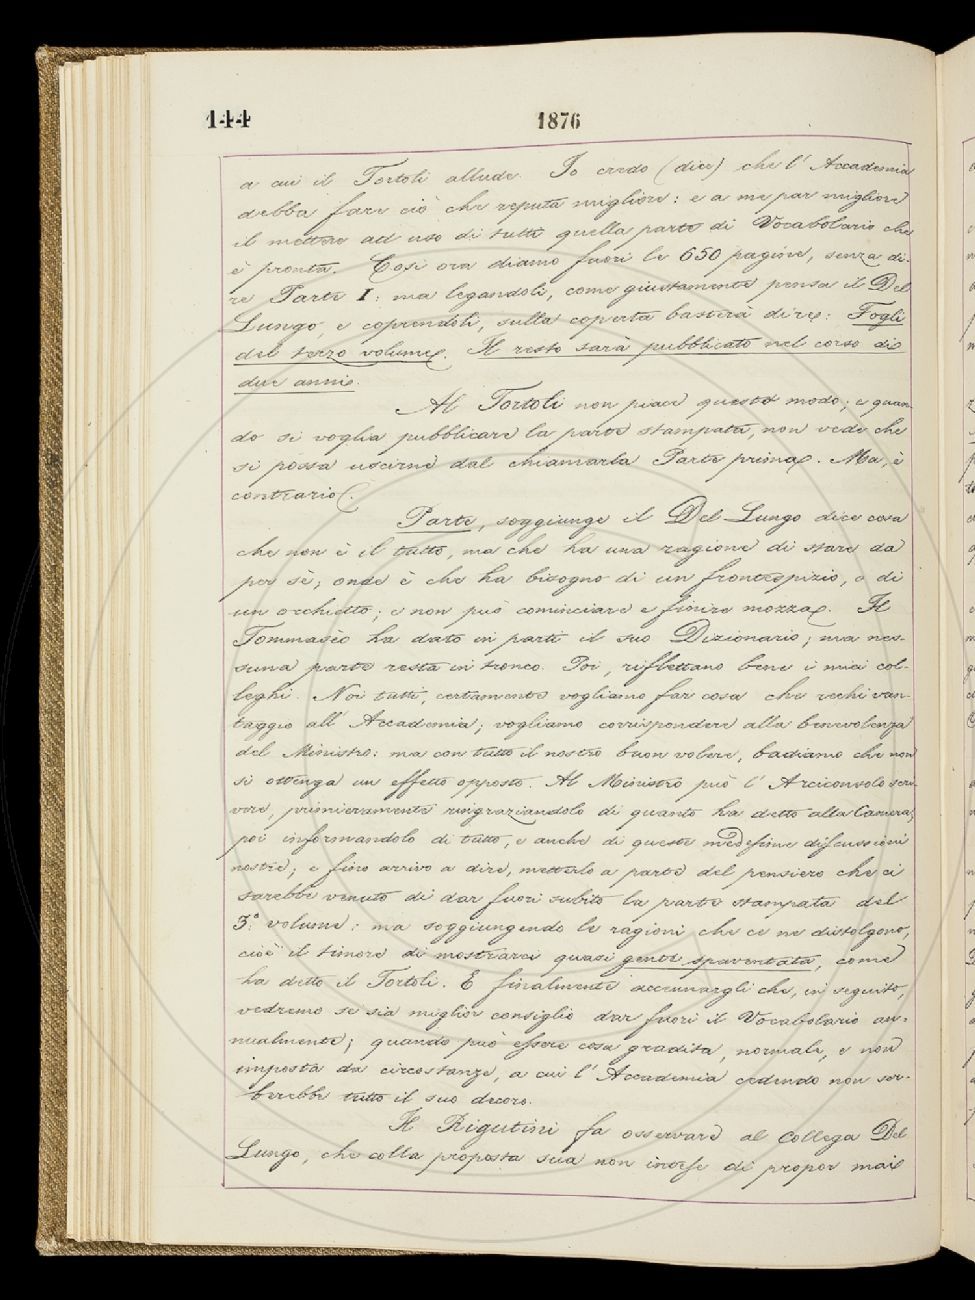 144
1876
a cui il Tortoli allude. Io credo (dice) che l'Accademia
debba fare ciò che reputa migliore: e a me par migliore
il mettere ad uso di tutti quella parte di Vocabolario che
è pronta. Così ora diamo fuori le 650 pagine, senza di-
re Parte I: ma legandoli, come giustamente pensa il Del
Lungo, e coprendoli, sulla coperta basterà dire: Fogli
del terzo volume. Il resto sarà pubblicato nel corso di
due anni.
Al Tortoli non piace questo modo; e quan-
do si voglia pubblicare la parte stampata, non vede che
si possa uscirne dal chiamarla Parte prima. Ma, è
contrario.
Parte, soggiunge il Del Lungo dice cosa
che non è il tutto, ma che ha una ragione di stare da
per sè; onde è che ha bisogno di un frontespizio, o di
un occhietto; e non può cominciare e finire mozza. Il
Tommasèo ha dato in parti il suo Dizionario; ma nes-
suna parte resta in tronco. Poi, riflettano bene i miei col-
leghi. Noi tutti, certamente vogliamo far cosa che rechi van-
taggio all'Accademia; vogliamo corrispondere alla benevolenza
del Ministro: ma con tutto il nostro buon volere, badiamo che non
si ottenga un effetto opposto. Al Ministro può l'Arciconsolo scri-
vere, primieramente ringraziandolo di quanto ha detto alla Camera;
poi informandolo di tutto, e anche di queste medesime discussioni
nostre; e fino arrivo a dire, metterlo a parte del pensiero che ci
sarebbe venuto di dar fuori subito la parte stampata del
3.º volume: ma soggiungendo le ragioni che ce ne distolgono,
cioè il timore di mostrarci quasi gente spaventata, come
ha detto il Tortoli. E finalmente accennargli che, in seguito,
vedremo se sia miglior consiglio dar fuori il Vocabolario an-
nualmente; quando può essere cosa gradita, normale, e non
imposta da circostanze, a cui l'Accademia cedendo non ser-
berebbe tutto il suo decoro.
Il Rigutini fa osservare al Collega Del
Lungo, che colla proposta sua non intese di propor mai